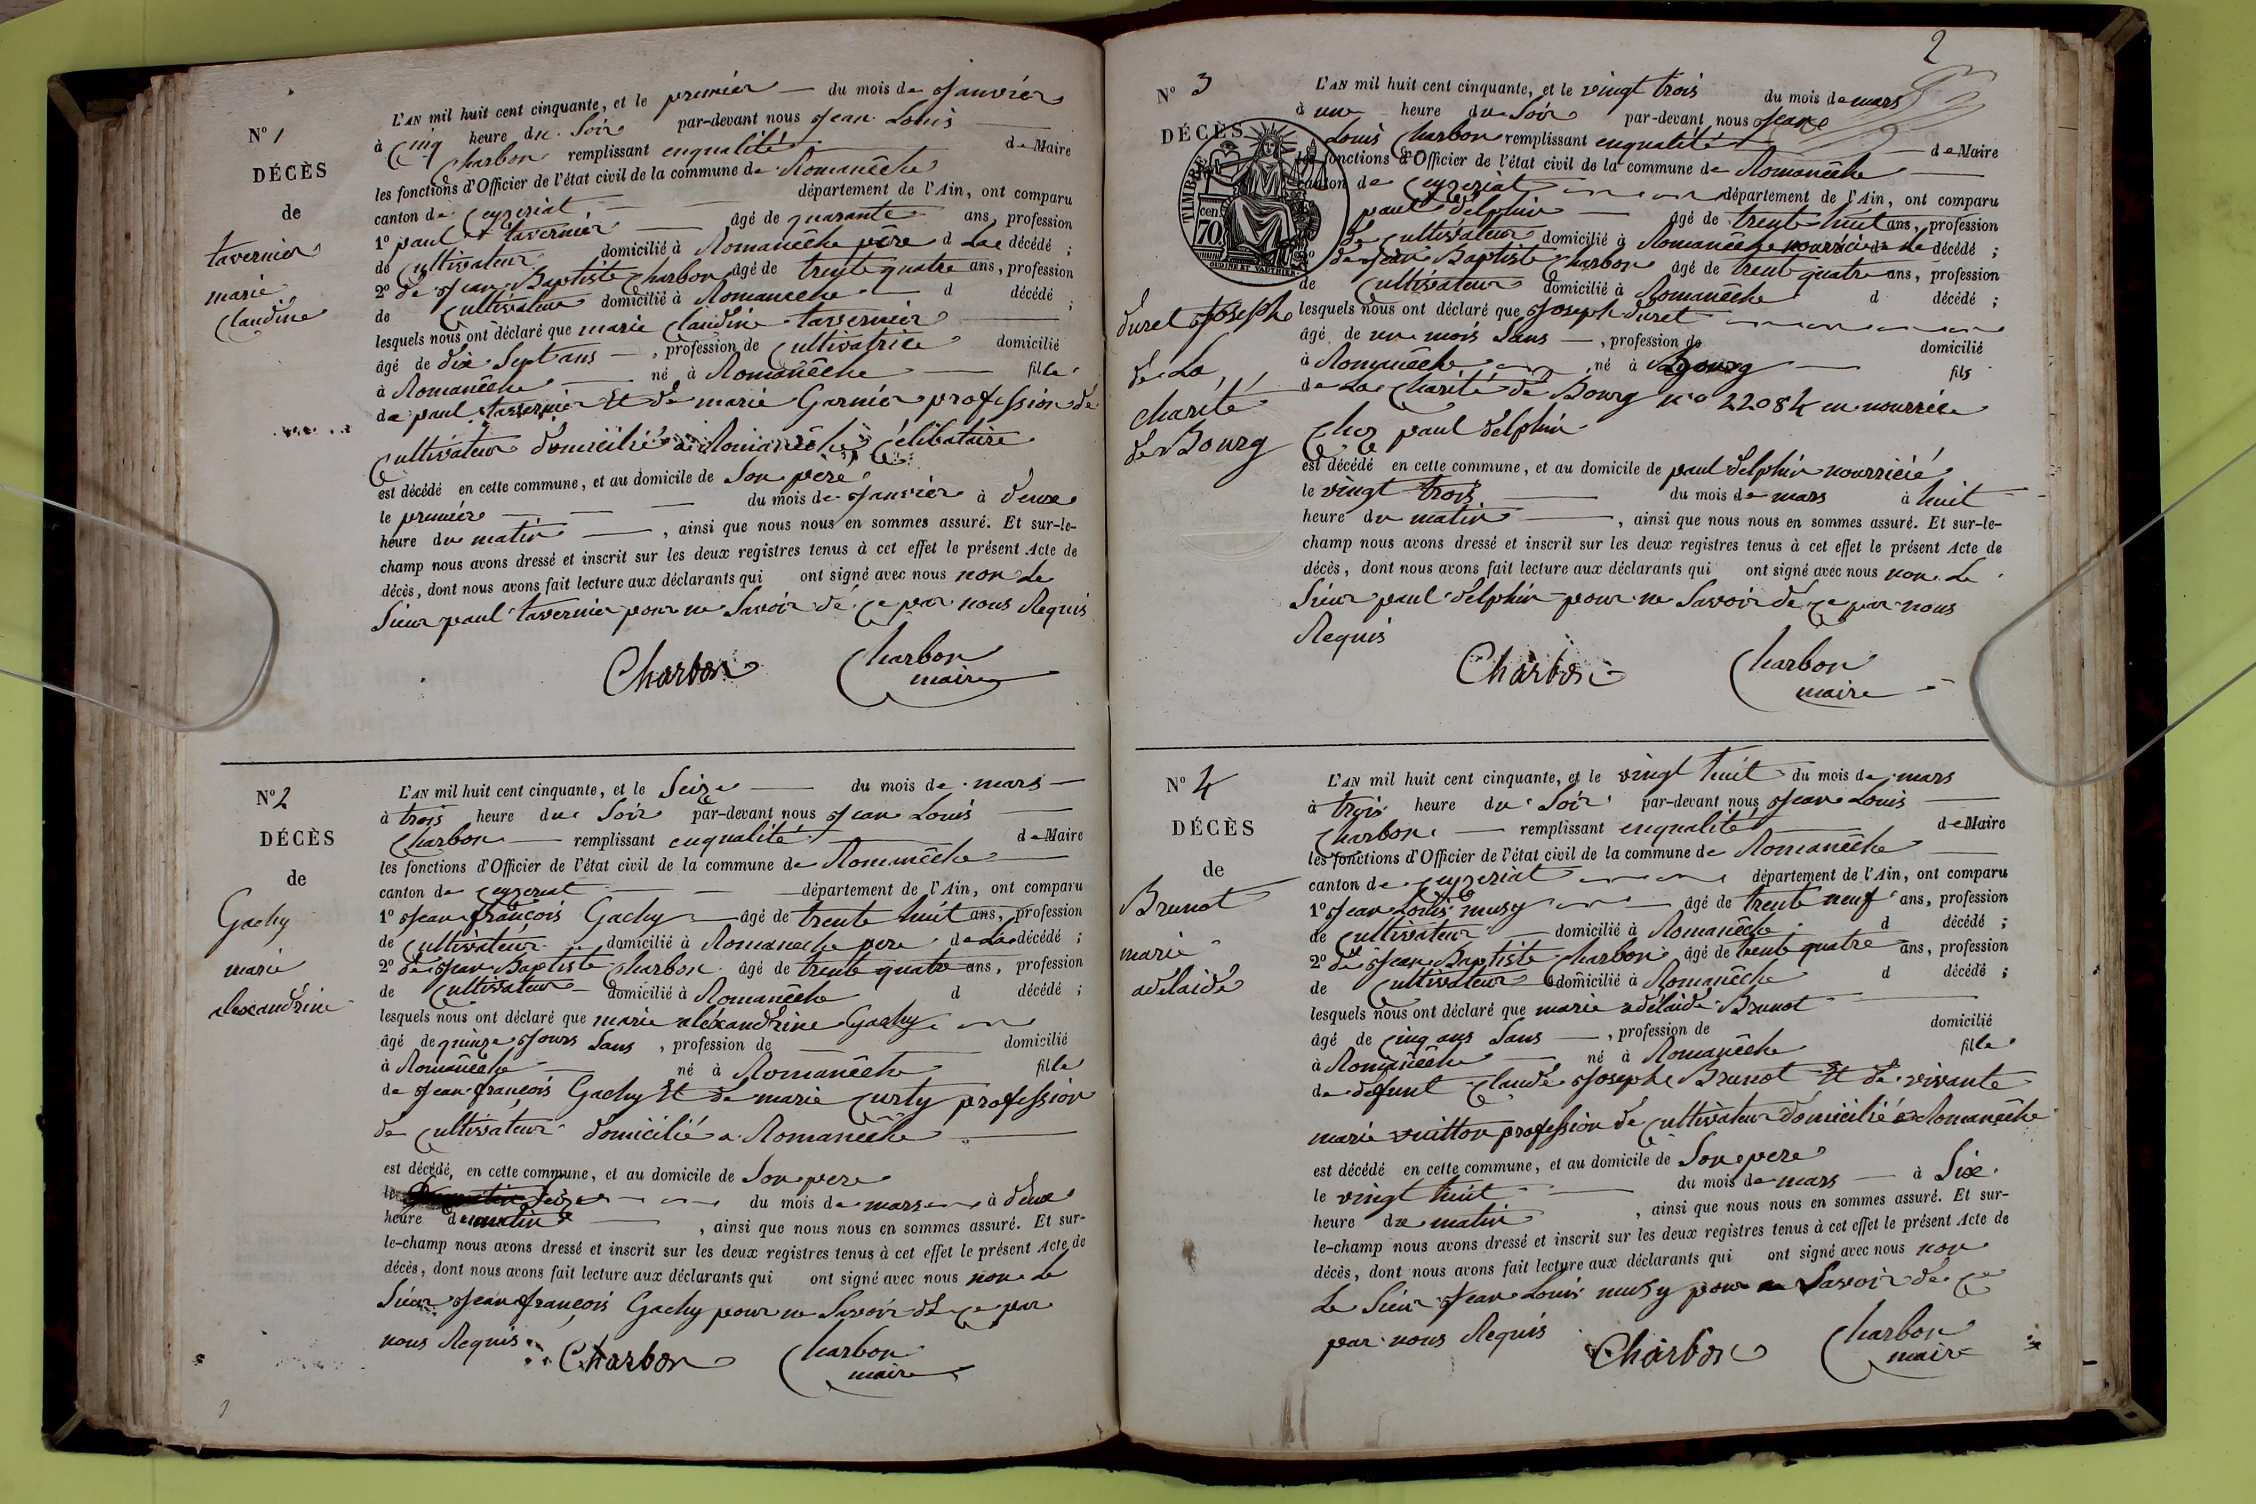 N° 1
DÉCÈS
de
tavernier
marie
Claudine
L'AN mil huit cent cinquante, et le premier du mois de Janvier
à Cinq heure du Soir par-devant nous Jean Louis
Charbon remplissant enqualité de Maire
les fonctions d'Officier de l'état civil de la commune de Romanêche
canton de Ceyzeriat département de l'Ain, ont comparu
1° paul tavernier âgé de quarante ans, profession
de Cultivateur domicilié à Romanêche père d La décédé ;
2° de Jean Baptiste Charbon âgé de trente quatre ans, profession
de Cultivateur domicilié à Romaneche d décédé ;
lesquels nous ont déclaré que marie Claudine tavernier
âgé de dix Sept ans , profession de Cultivatrice domicilié
à Romanêche né à Romanêche fille
de paul tavernier Et de marie Garnier profession de
Cultivateur domicilié a Romanêche Célibataire
est décédé en cette commune, et au domicile de Son père
le premier du mois de Janvier à deux
heure du matin , ainsi que nous nous en sommes assuré. Et sur-le-
champ nous avons dressé et inscrit sur les deux registres tenus à cet effet le présent Acte de
décès, dont nous avons fait lecture aux déclarants qui ont signé avec nous non le
Sieur paul tavernier pour ne Savoir de ce par nous Requis
Charbon Charbon
maire
N° 2
DÉCÈS
de
Gachy
marie
alexandrine
L'AN mil huit cent cinquante, et le Seize du mois de mars
à trois heure du Soir par-devant nous Jean Louis
Charbon remplissant enqualité de Maire
les fonctions d'Officier de l'état civil de la commune de Romanêche
canton de Ceyzeriat département de l'Ain, ont comparu
1° Jean françois Gachy âgé de trente huit ans, profession
de Cultivateur domicilié à Romaneche pere de La décédé ;
2° de Jean Baptiste Charbon âgé de trente quatre ans, profession
de Cultivateur domicilié à Romanêche d décédé ;
lesquels nous ont déclaré que marie alexandrine Gachy
âgé de quinze Jours Sans , profession de domicilié
à Romanêche né à Romanêche fille
de Jean françois Gachy Et de marie Curty profession
de Cultivateur domicilié a Romanêche
est décédé, en cette commune, et au domicile de Son pere
le Seize du mois de mars à deux
heure du matin , ainsi que nous nous en sommes assuré. Et sur-
le-champ nous avons dressé et inscrit sur les deux registres tenus à cet effet le présent Acte de
décès, dont nous avons fait lecture aux déclarants qui ont signé avec nous non le
Sieur Jean françois Gachy pour ne Savoir de ce par
nous Requis
Charbon Charbon
maire
2
N° 3
DÉCÈS
TIMBRE
70 cen
OUDINÉ ET VAUTHIER
duret Joseph
de La
Charité
de Bourg
L'AN mil huit cent cinquante, et le vingt trois du mois de mars
à une heure du Soir par-devant nous Jean
Louis Charbon remplissant enqualité de Maire
les fonctions d'Officier de l'état civil de la commune de Romanêche
canton de Ceyzeriat département de l'Ain, ont comparu
paul delphin âgé de trente huit ans, profession
de Cultivateur domicilié à Romanêche nourricié de décédé ;
2° de Jean Baptiste Charbon âgé de trente quatre ans, profession
de Cultivateur domicilié à Romanêche d décédé ;
lesquels nous ont déclaré que Joseph duret
âgé de un mois Sans , profession de domicilié
à Romanêche né à Bourg fils
de La Charité de Bourg n° 22084 en nourrice
Chez paul delphin
est décédé en cette commune, et au domicile de paul delphin nourricié
le vingt trois du mois de mars à huit
heure du matin , ainsi que nous nous en sommes assuré. Et sur-le-
champ nous avons dressé et inscrit sur les deux registres tenus à cet effet le présent Acte de
décès, dont nous avons fait lecture aux déclarants qui ont signé avec nous non le
Sieur paul delphin pour ne Savoir de ce par nous
Requis
Charbon Charbon
maire
N° 4
DÉCÈS
de
Brunot
marie
adelaide
L'AN mil huit cent cinquante, et le vingt huit du mois de mars
à trois heure du Soir par-devant nous Jean Louis
Charbon remplissant enqualité de Maire
les fonctions d'Officier de l'état civil de la commune de Romanêche
canton de Ceyzeriat département de l'Ain, ont comparu
1° Jean Louis musy âgé de trente neuf ans, profession
de Cultivateur domicilié à Romanêche d décédé ;
2° de Jean Baptiste Charbon âgé de trente quatre ans, profession
de Cultivateur domicilié à Romanêche d décédé ;
lesquels nous ont déclaré que marie adélaide Brunot
âgé de Cinq ans Sans , profession de domicilié
à Romanêche né à Romanêche fille
de defunt Claude Joseph Brunot Et de vivante
marie vuitton profession de Cultivateur domicilié a Romanêche
est décédé en cette commune, et au domicile de Son pere
le vingt huit du mois de mars à Six
heure du matin , ainsi que nous nous en sommes assuré. Et sur-
le-champ nous avons dressé et inscrit sur les deux registres tenus à cet effet le présent Acte de
décès, dont nous avons fait lecture aux déclarants qui ont signé avec nous non
Le Sieur Jean Louis musy pour ne Savoir de ce
par nous Requis
Charbon Charbon
maire